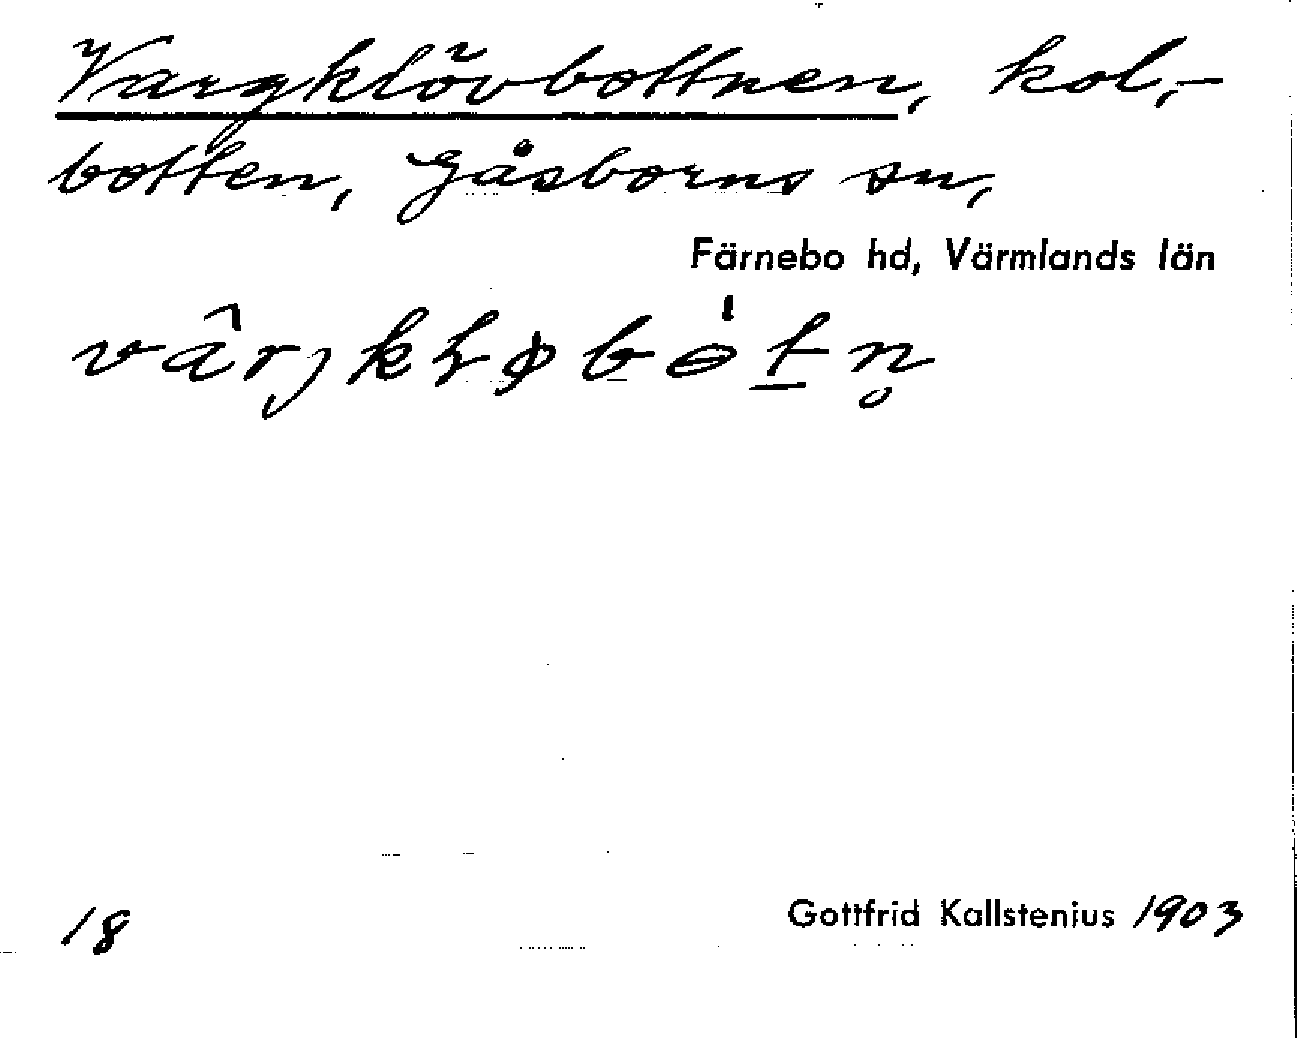 Vargklövbottnen, kol,-
botten, Gåsborns sn,
Färnebo hd, Värmlands län
18
Gottfrid Kallstenius 1903